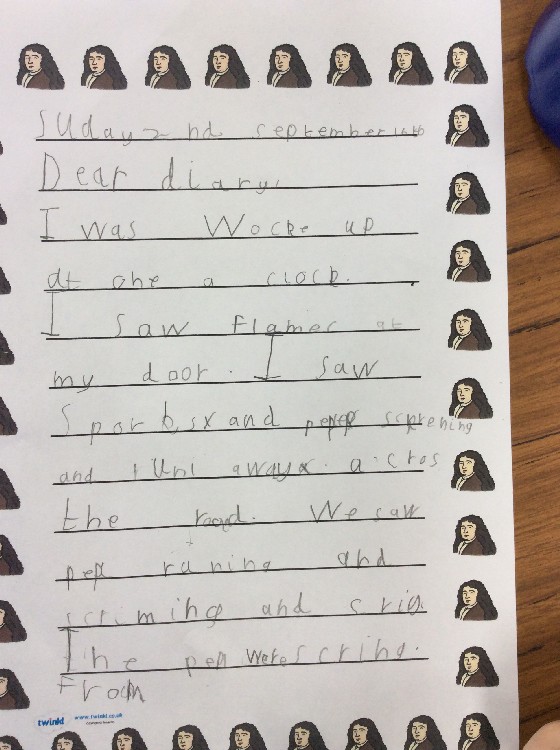 SUday 2 nd september
Dear diary,
I was Wocke up
at one a clock.
I saw flames at
my door. I saw
and
and away a.cros
the road. We saw
pepl raning and
scriming and
The pepl were scring.
From
twinkl www.twinkl.co.uk